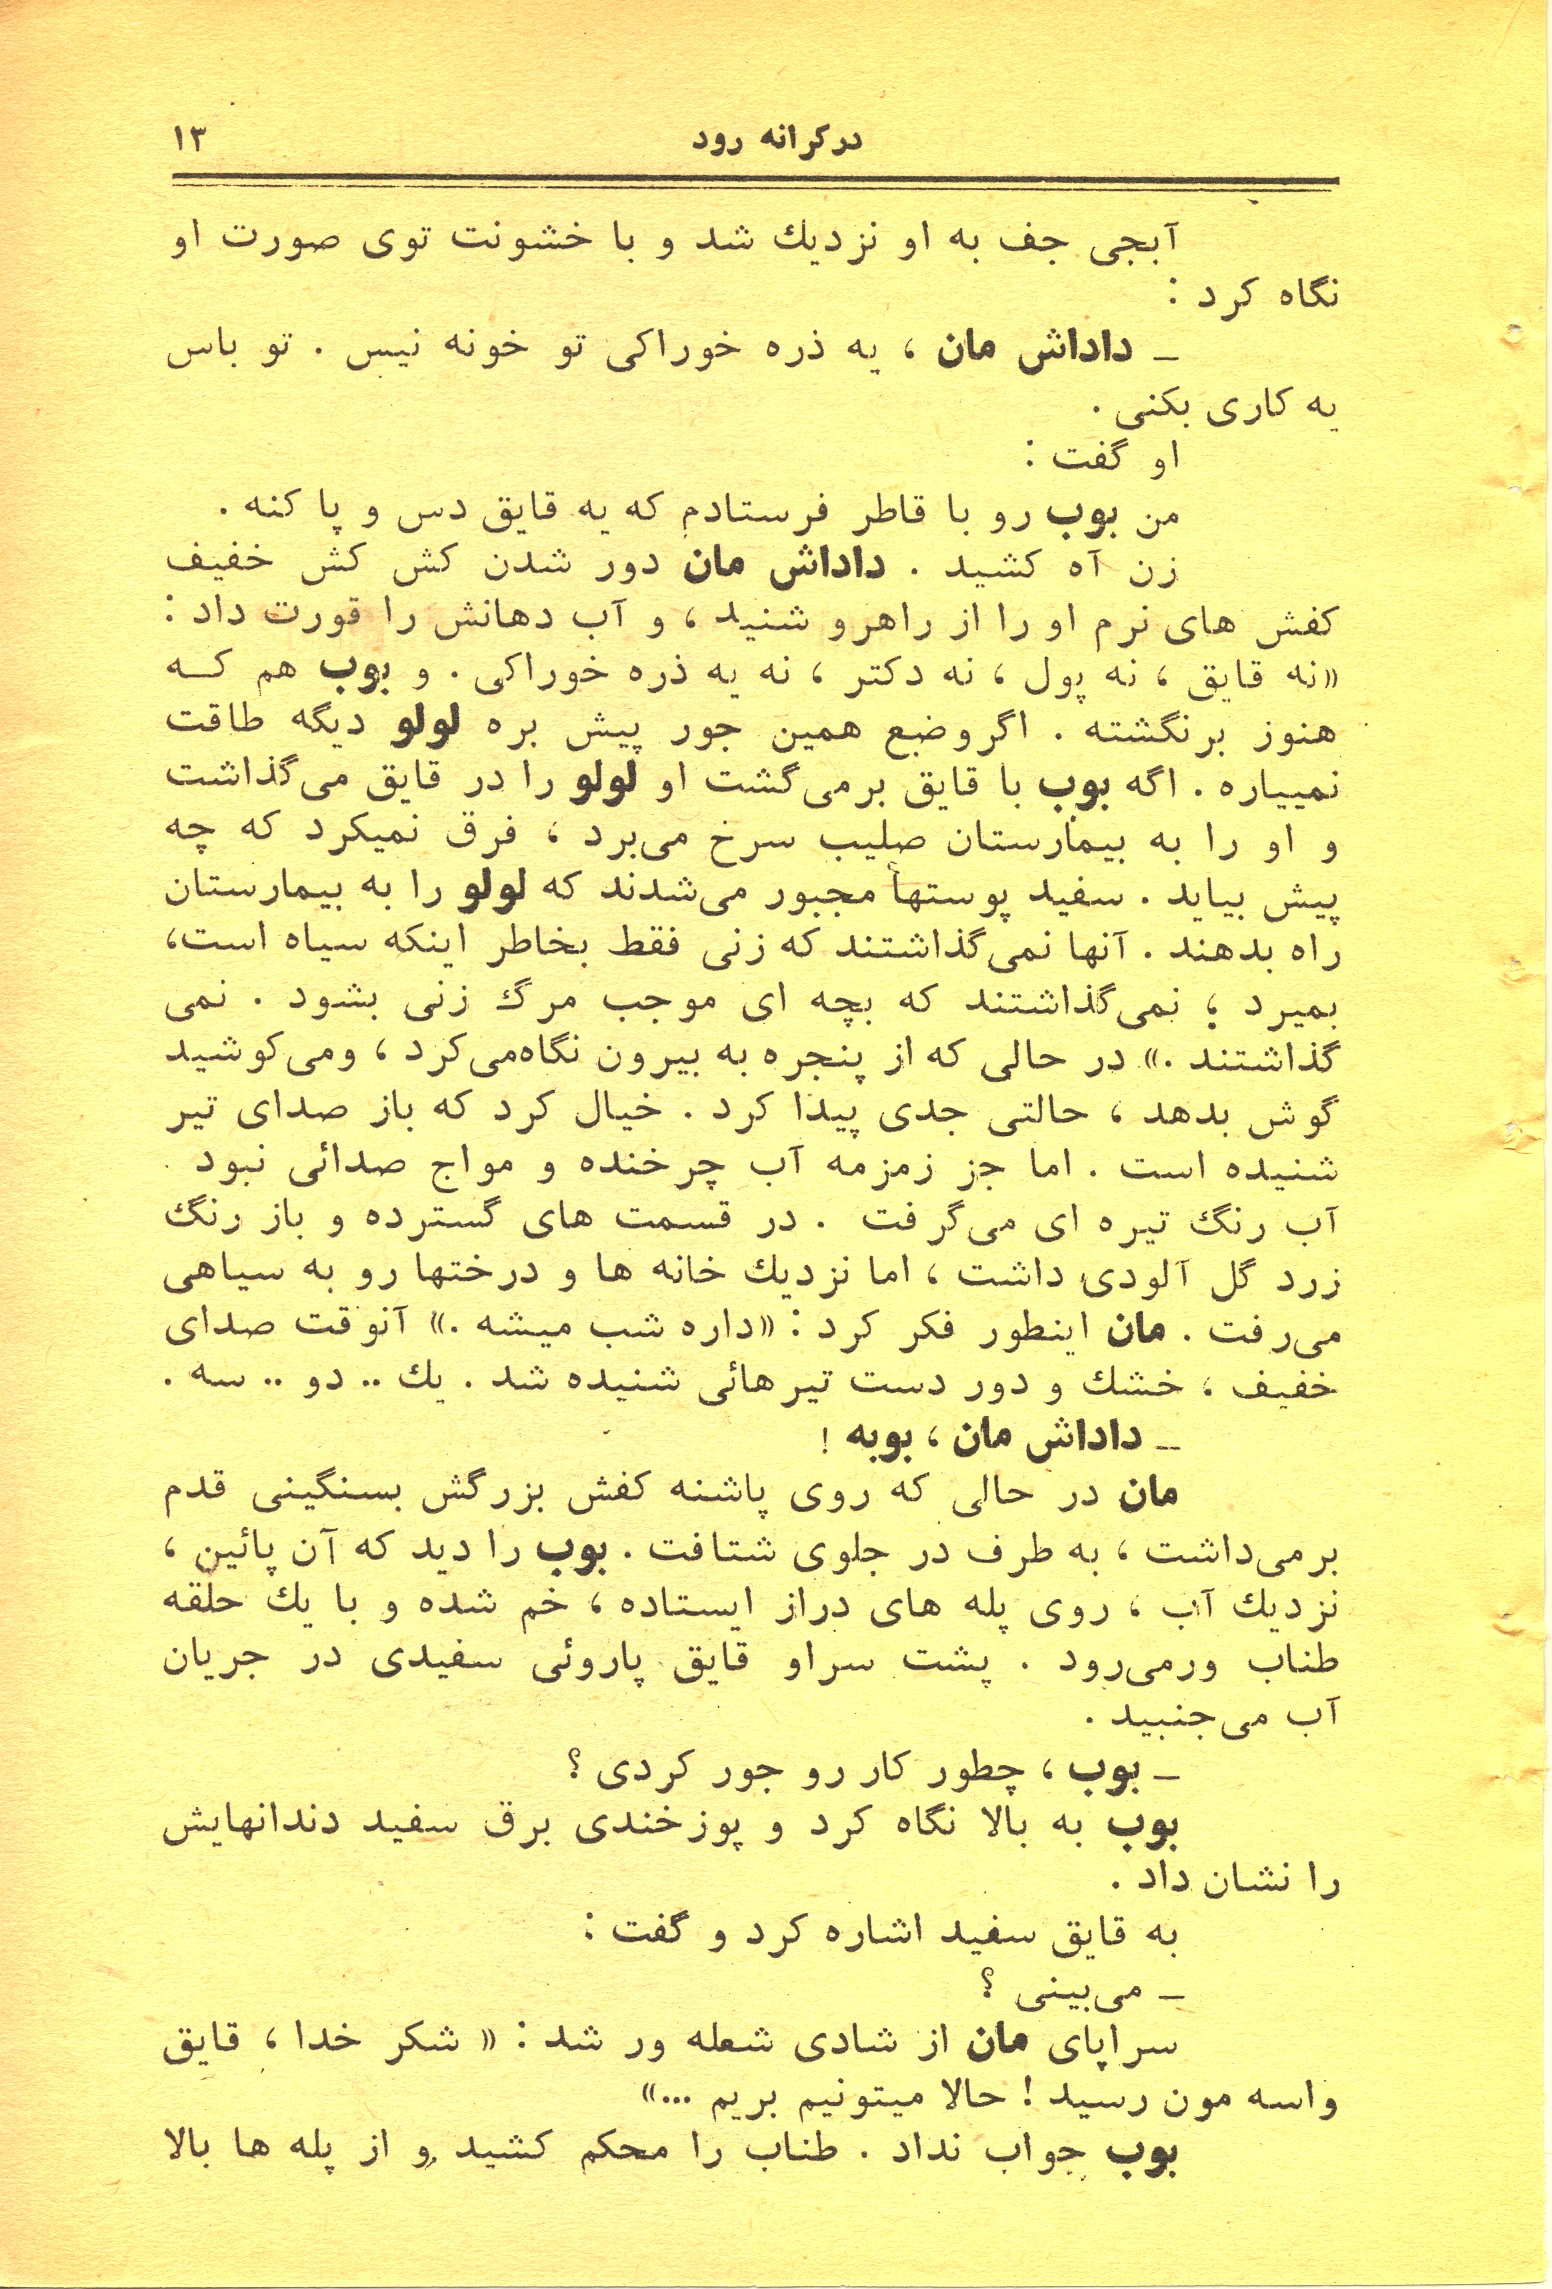 درکرانه رود
۱۳
آبجی جف به او نزدیك شد و با خشونت توی صورت او
نگاه کرد :
ـ داداش مان ، یه ذره خوراکی تو خونه نیس . تو باس
یه کاری بکنی .
او گفت :
من بوب رو با قاطر فرستادم که یه قایق دس و پا کنه .
زن آه کشید . داداش مان دور شدن کش کش خفیف
کفش های نرم او را از راهرو شنید ، و آب دهانش را قورت داد :
«نه قایق ، نه پول ، نه دکتر ، نه یه ذره خوراکی . و بوب هم کـه
هنوز برنگشته . اگروضع همین جور پیش بره لولو دیگه طاقت
نمییاره . اگه بوب با قایق برمی‌گشت او لولو را در قایق می‌گذاشت
و او را به بیمارستان صلیب سرخ می‌برد ، فرق نمیکرد که چه
پیش بیاید . سفید پوستها مجبور می‌شدند که لولو را به بیمارستان
راه بدهند . آنها نمی‌گذاشتند که زنی فقط بخاطر اینکه سیاه است،
بمیرد ؛ نمی‌گذاشتند که بچه ای موجب مرگ زنی بشود . نمی
گذاشتند .» در حالی که از پنجره به بیرون نگاه‌می‌کرد ، ومی‌کوشید
گوش بدهد ، حالتی جدی پیدا کرد . خیال کرد که باز صدای تیر
شنیده است . اما جز زمزمه آب چرخنده و مواج صدائی نبود .
آب رنگ تیره ای می‌گرفت . در قسمت های گسترده و باز رنگ
زرد گل آلودی داشت ، اما نزدیك خانه ها و درختها رو به سیاهی
می‌رفت . مان اینطور فکر کرد : «داره شب میشه .» آنوقت صدای
خفیف ، خشك و دور دست تیرهائی شنیده شد . یك .. دو .. سه .
ـ داداش مان ، بوبه !
مان در حالی که روی پاشنه کفش بزرگش بسنگینی قدم
برمی‌داشت ، به طرف در جلوی شتافت . بوب را دید که آن پائین ،
نزدیك آب ، روی پله های دراز ایستاده ، خم شده و با یك حلقه
طناب ورمی‌رود . پشت سراو قایق پاروئی سفیدی در جریان
آب می‌جنبید .
ـ بوب ، چطور کار رو جور کردی ؟
بوب به بالا نگاه کرد و پوزخندی برق سفید دندانهایش
را نشان داد .
به قایق سفید اشاره کرد و گفت :
ـ می‌بینی ؟
سراپای مان از شادی شعله ور شد : « شکر خدا ، قایق
واسه مون رسید ! حالا میتونیم بریم ...»
بوب جواب نداد . طناب را محکم کشید و از پله ها بالا